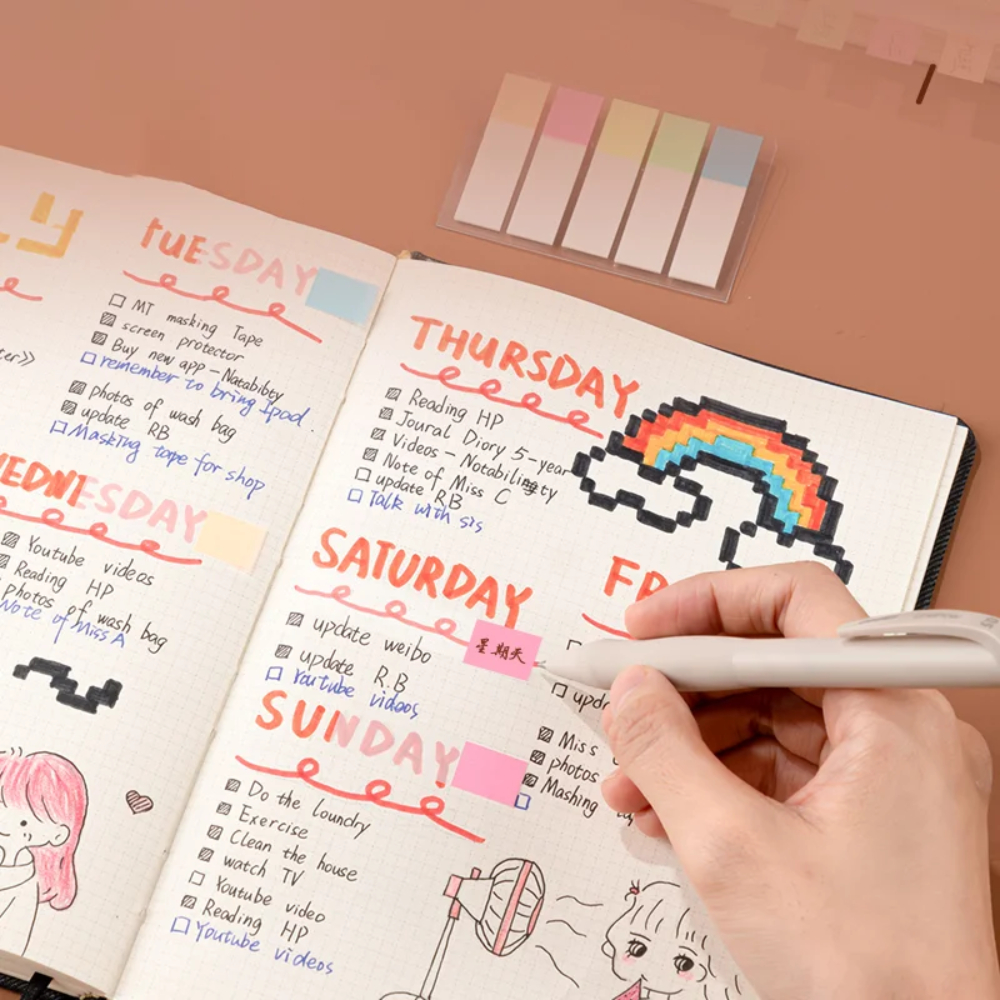 TUESDAY
MT masking Tape
screen protector
Buy new app - Notabibty
remember to bring Ipad.
photos of wash bag
update RB
Masking tape for shop
WEDNESDAY
Youtube videos
Reading HP
photos of wash bag
Note of Miss A
THURSDAY
Reading HP
Joural Diary 5-year
Videos - Notability
Note of Miss C
update RB
Talk with sis
SATURDAY
update weibo
星期天
update R.B
Youtube videos
SUNDAY
Do the loundry
Exercise
Clean the house
watch TV
Youtube video
Reading HP
Youtube videos
FR
upd
Miss
photos
Mashing